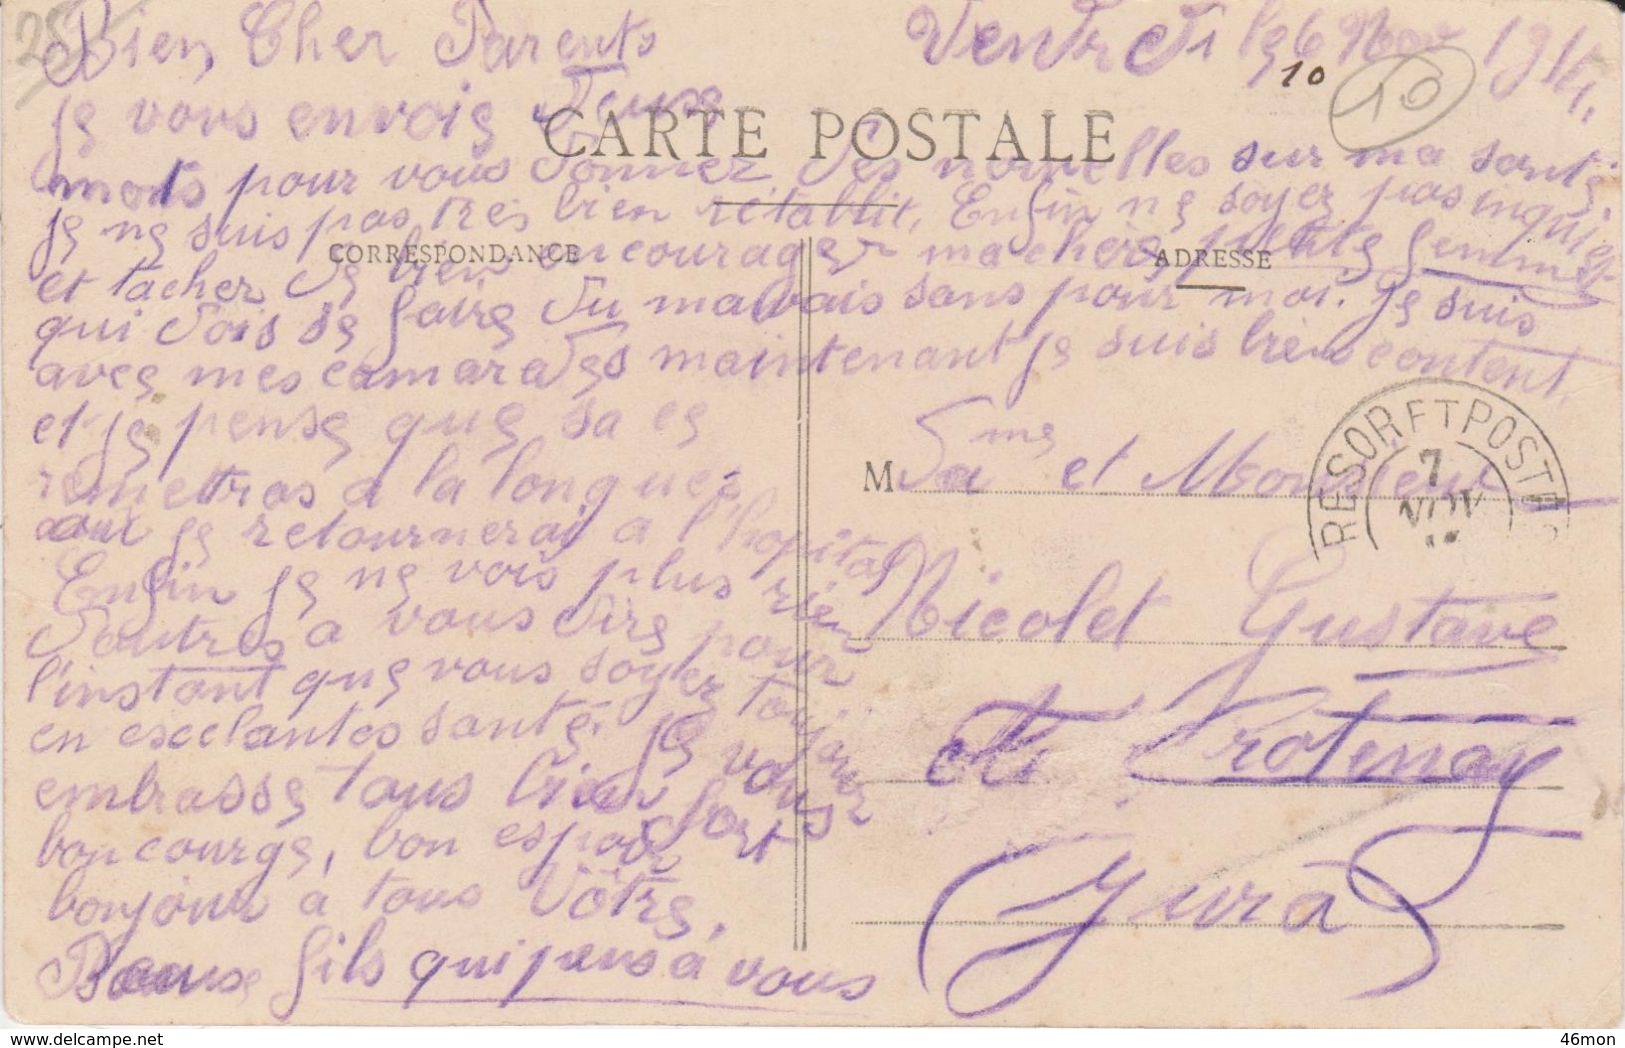 25
Bien Cher Parents
Vendredi le 6 Nov 1914.
10
10
je vous envois deuse
CARTE POSTALE
mots pour vous donnez des nouvelles sur ma santé.
je ne suis pas très bien rétablit, Enfin ne soyez pas inquiet
CORRESPONDANCE
ADRESSE
et tacher de bien encourager ma chère petite femme
qui dois se faire du mauvais sans pour moi. je suis
avec mes camarades maintenant je suis bien content.
et je pense que sa ce
remettras a la longues
je retournerai a l'hopital
Enfin je ne vois plus rien
d'autres a vous dire pour
l'instant que vous soyez toujours
en escelantes santé. je vous
embrasse tous bien fort
bon courge, bon espoir
bonjour à tous Vôtre,
fils qui pens à vous
M Dame et Monsieur
Nicolet Gustave
Crotenay
Jura
TRESOR ET POSTES
7
NOV
46mon